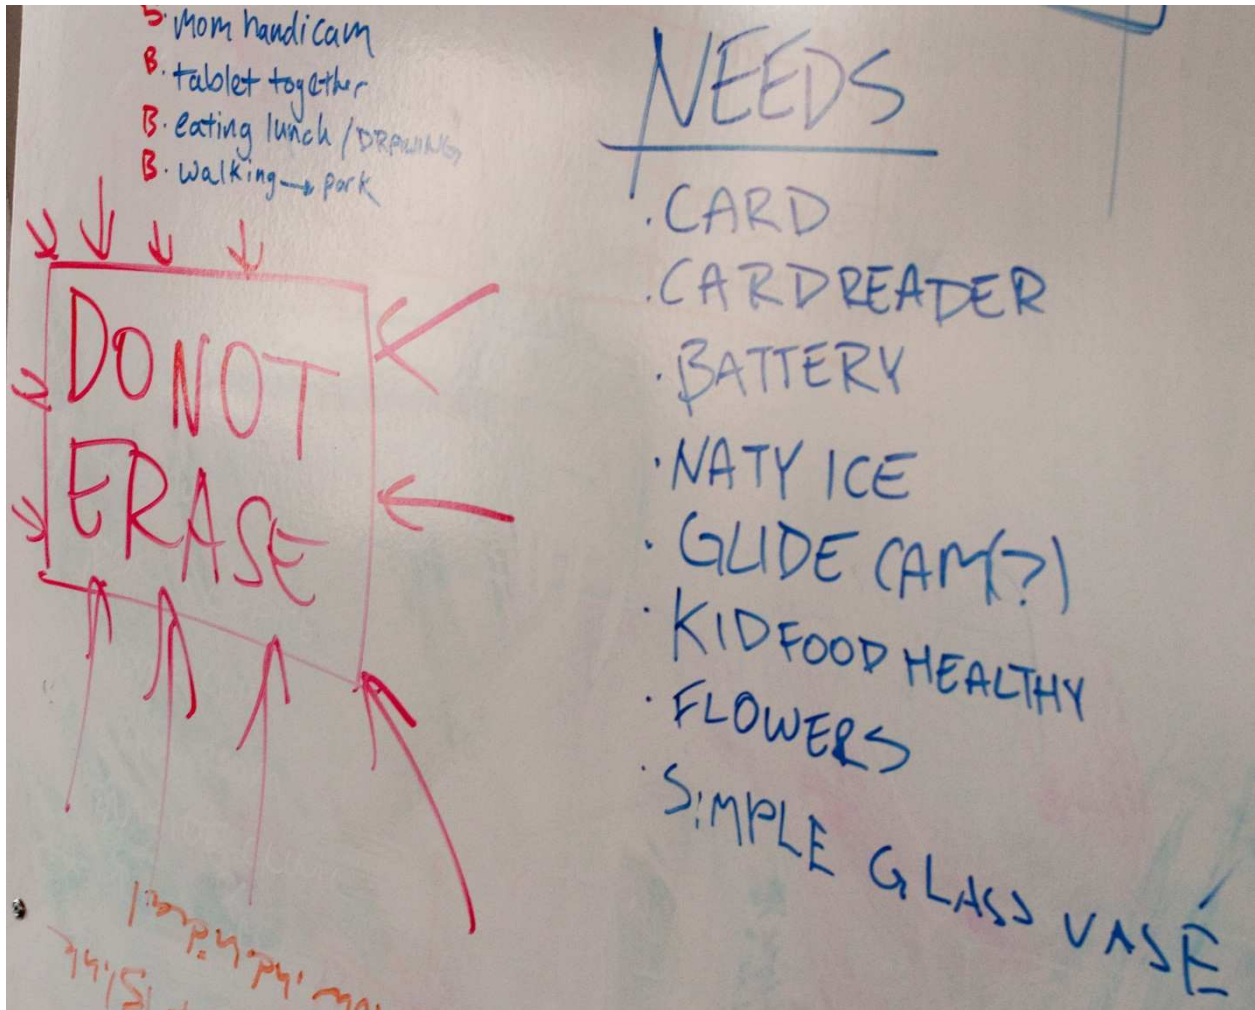 S. Mom handicam
B. tablet together
B. eating lunch / DRAWING
B. walking → park
DO NOT
ERASE
NEEDS
· CARD
· CARDREADER
· BATTERY
· NATY ICE
· GLIDE CAM(?)
· KID FOOD HEALTHY
· FLOWERS
· SIMPLE GLASS VASE